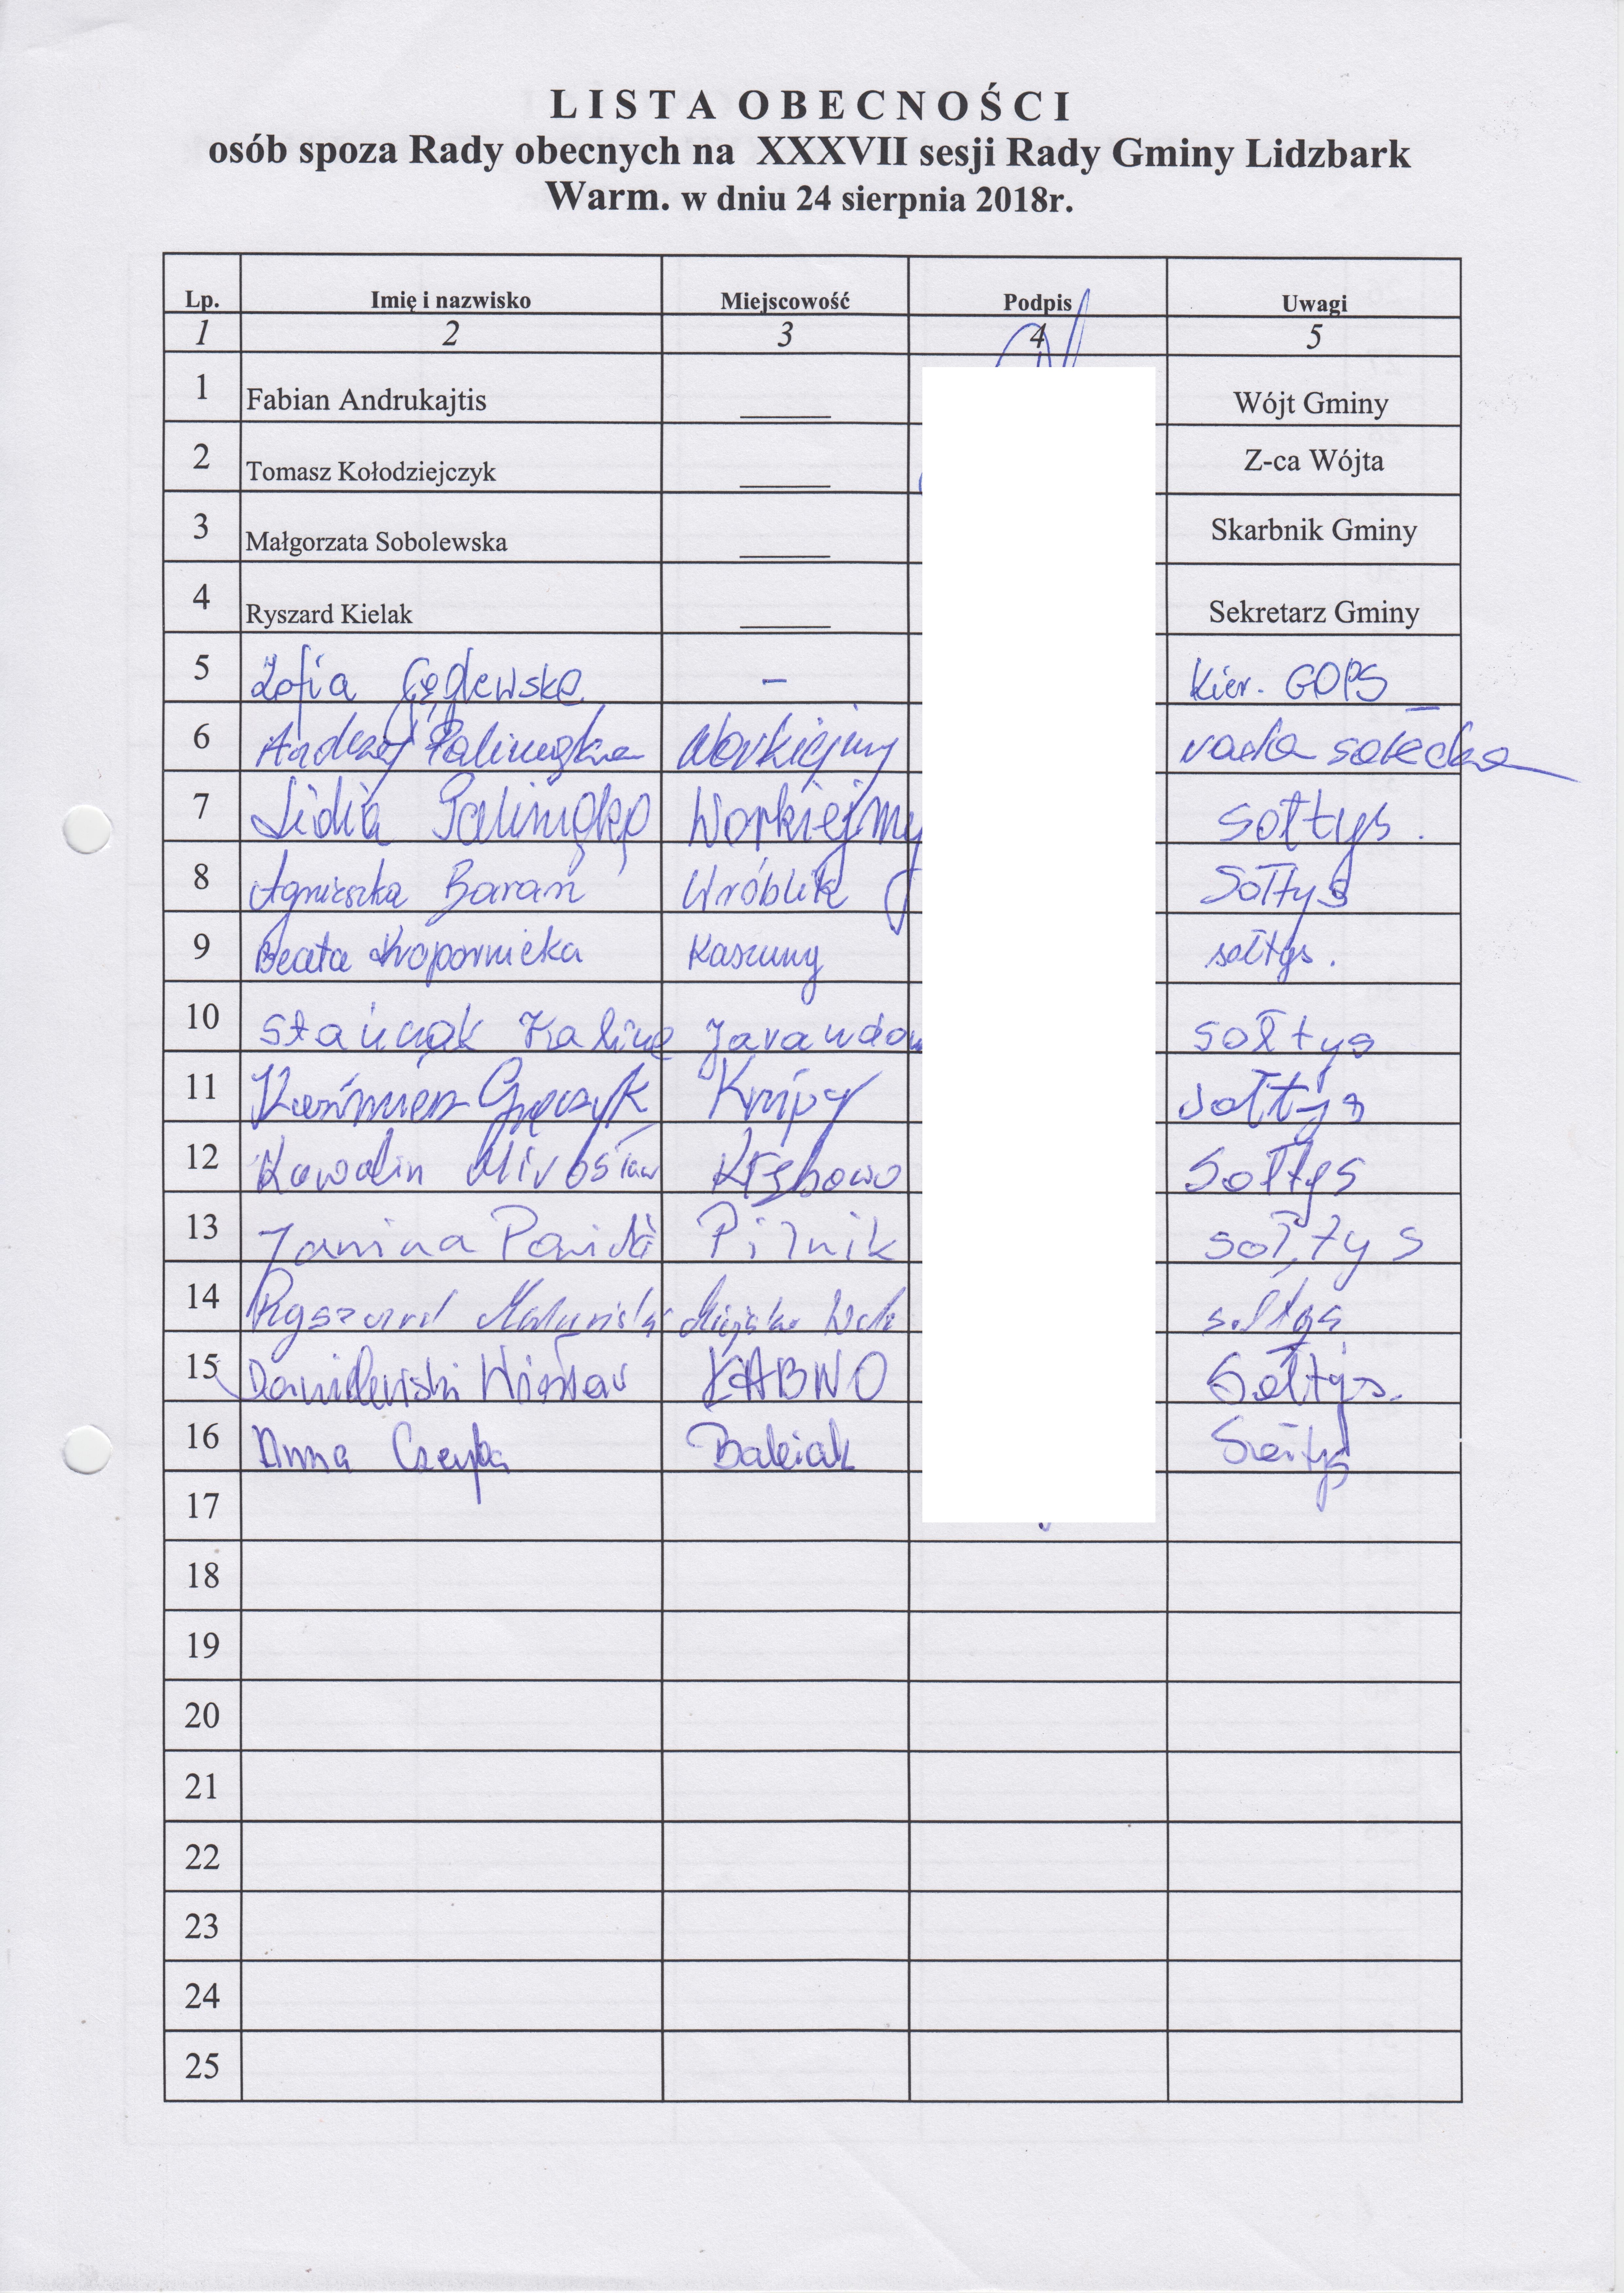 LISTA OBECNOŚCI
osób spoza Rady obecnych na XXXVII sesji Rady Gminy Lidzbark
Warm. w dniu 24 sierpnia 2018r.
Lp. Imię i nazwisko Miejscowość Podpis Uwagi
1 2 3 4 5
1 Fabian Andrukajtis Wójt Gminy
2 Tomasz Kołodziejczyk Z-ca Wójta
3 Małgorzata Sobolewska Skarbnik Gminy
4 Ryszard Kielak Sekretarz Gminy
5 Zofia - Kier. GOPS
6 Andrzej Workiejmy rada sołecka
7 Lidia Workiejmy sołtys.
8 Agnieszka Baran Wróblik Sołtys
9 Beata Kropornicka Kaszuny sołtys.
10 Stańczak Kalina sołtys
11 Kazimierz Knipy sołtys
12 Kowalin Mirosław Kłębowo Sołtys
13 Janina Pilnik sołtys
14 Ryszard sołtys
15 Danilewski ŁABNO Sołtys.
16 Anna Czepla Babiak Sołtys
17
18
19
20
21
22
23
24
25